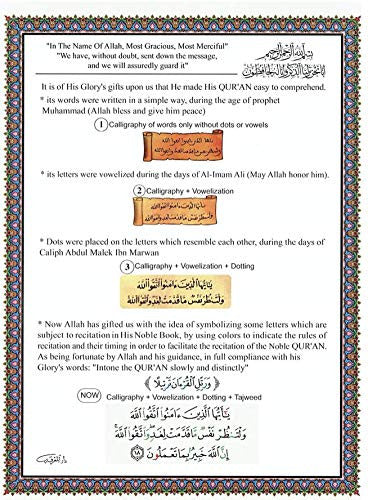 "In The Name Of Allah, Most Gracious, Most Merciful"
"We have, without doubt, sent down the message,
and we will assuredly guard it"
بسم الله الرحمن الرحيم
إنا نحن نزلنا الذكر وإنا له لحافظون
It is of His Glory's gifts upon us that He made His QUR'AN easy to comprehend.
* its words were written in a simple way, during the age of prophet
Muhammad (Allah bless and give him peace)
1 Calligraphy of words only without dots or vowels
* its letters were vowelized during the days of Al-Imam Ali (May Allah honor him).
2 Calligraphy + Vowelization
* Dots were placed on the letters which resemble each other, during the days of
Caliph Abdul Malek Ibn Marwan
3 Calligraphy + Vowelization + Dotting
يَٰٓأَيُّهَا ٱلَّذِينَ ءَامَنُوا۟ ٱتَّقُوا۟ ٱللَّهَ
وَلْتَنظُرْ نَفْسٌ مَّا قَدَّمَتْ لِغَدٍ وَٱتَّقُوا۟ ٱللَّهَ
* Now Allah has gifted us with the idea of symbolizing some letters which are
subject to recitation in His Noble Book, by using colors to indicate the rules of
recitation and their timing in order to facilitate the recitation of the Noble QUR'AN.
As being fortunate by Allah and his guidance, in full compliance with his
Glory's words: "Intone the QUR'AN slowly and distinctly"
﴿ وَرَتِّلِ ٱلْقُرْءَانَ تَرْتِيلًا ﴾
NOW Calligraphy + Vowelization + Dotting + Tajweed
يَٰٓأَيُّهَا ٱلَّذِينَ ءَامَنُوا۟ ٱتَّقُوا۟ ٱللَّهَ
وَلْتَنظُرْ نَفْسٌ مَّا قَدَّمَتْ لِغَدٍ وَٱتَّقُوا۟ ٱللَّهَ
إِنَّ ٱللَّهَ خَبِيرٌۢ بِمَا تَعْمَلُونَ ١٨
دار المعرفة